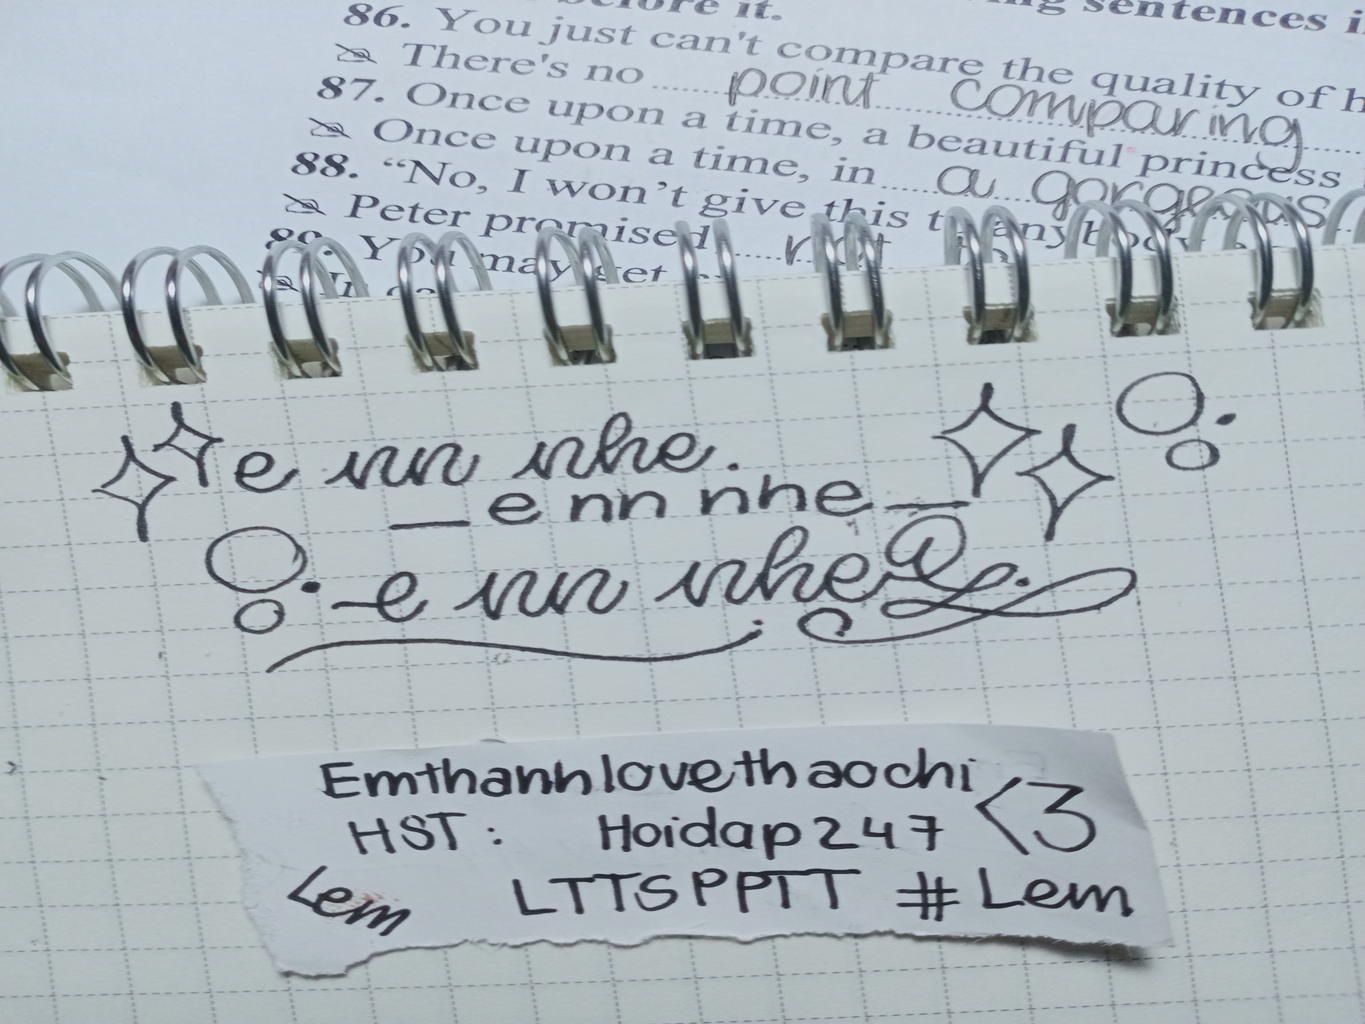 before it.
sentences
86. You just can't compare the quality of
There's no ..... point comparing
87. Once upon a time, a beautiful princess
Once upon a time, in .... a gorgeous
88. “No, I won’t give this to anybody
Peter promised ..... not
89. You may get
e nn nhe.
_ e nn nhe _
e nn nhe
Emthanhlovethaochi
HST: Hoidap247 <3
Lem LTTSPPTT #Lem